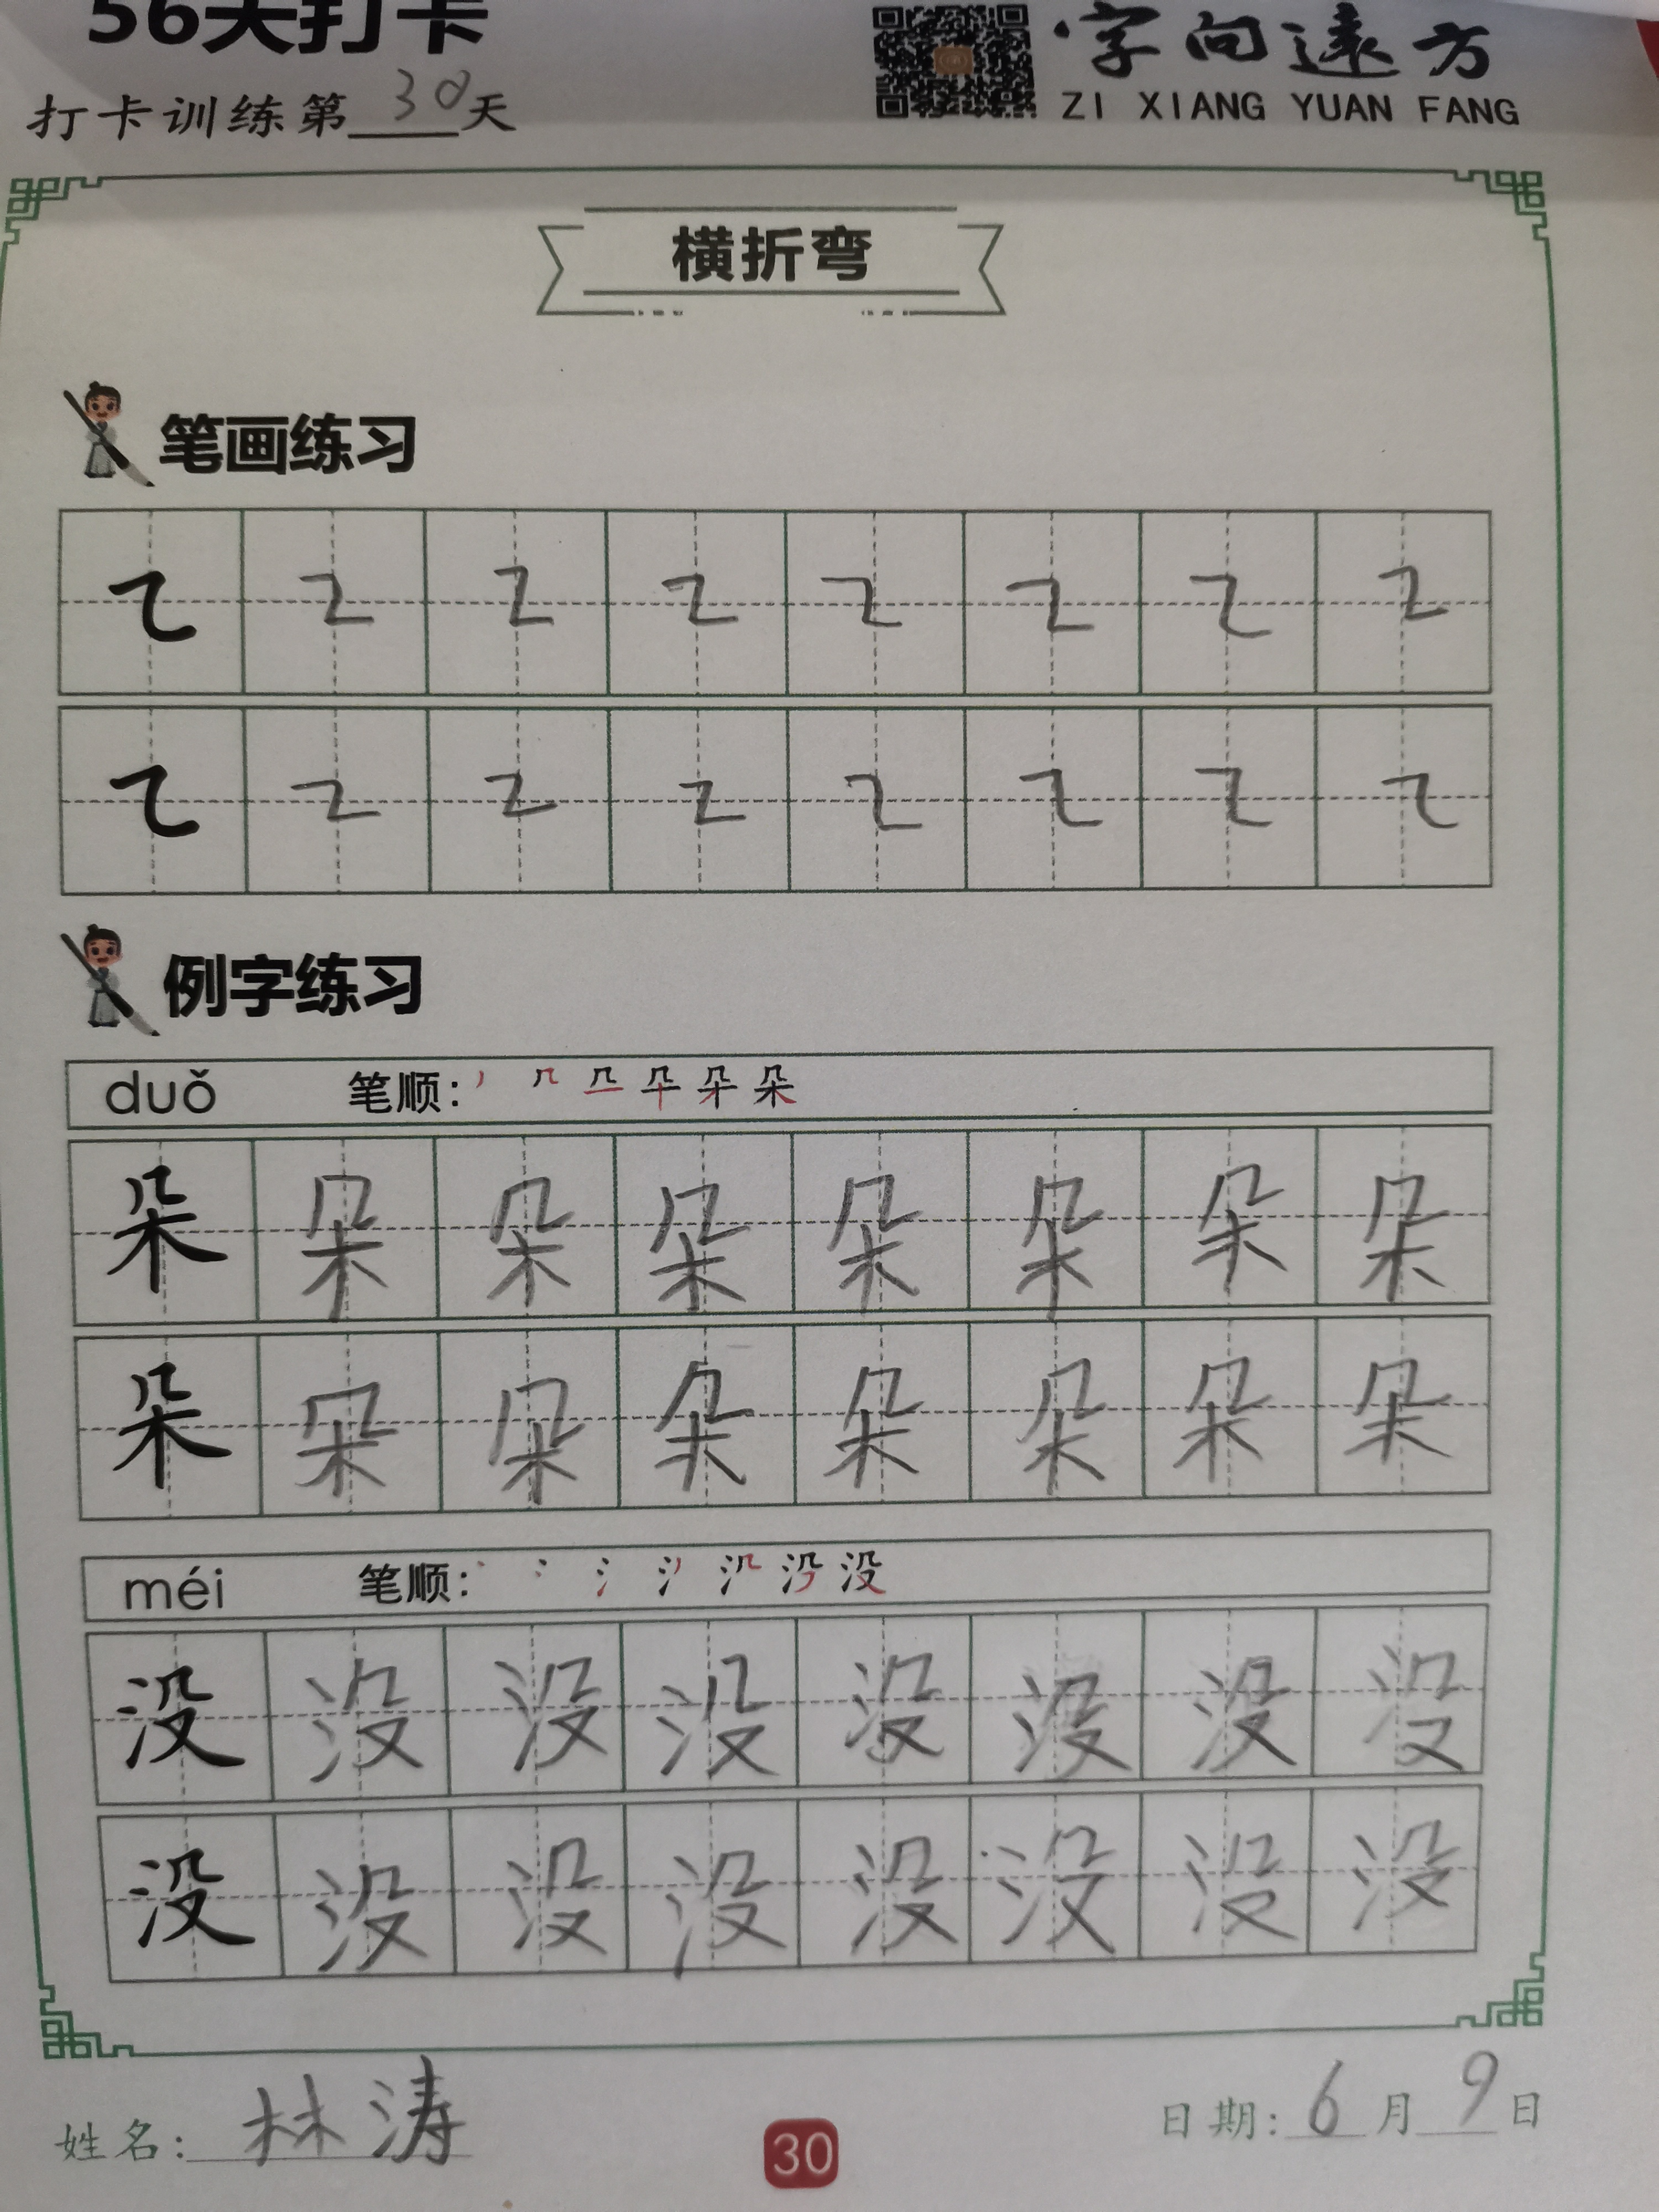 56天打卡
字向遠方
打卡训练第30天
ZI XIANG YUAN FANG
横折弯
笔画练习
㇍ ㇍ ㇍ ㇍ ㇍ ㇍ ㇍ ㇍
㇍ ㇍ ㇍ ㇍ ㇍ ㇍ ㇍ ㇍
例字练习
duǒ 笔顺: 朵
朵 朵 朵 朵 朵 朵 朵 朵
朵 朵 朵 朵 朵 朵 朵 朵
méi 笔顺: 没
没 没 没 没 没 没 没 没
没 没 没 没 没 没 没 没
姓名: 林涛
30
日期: 6月9日